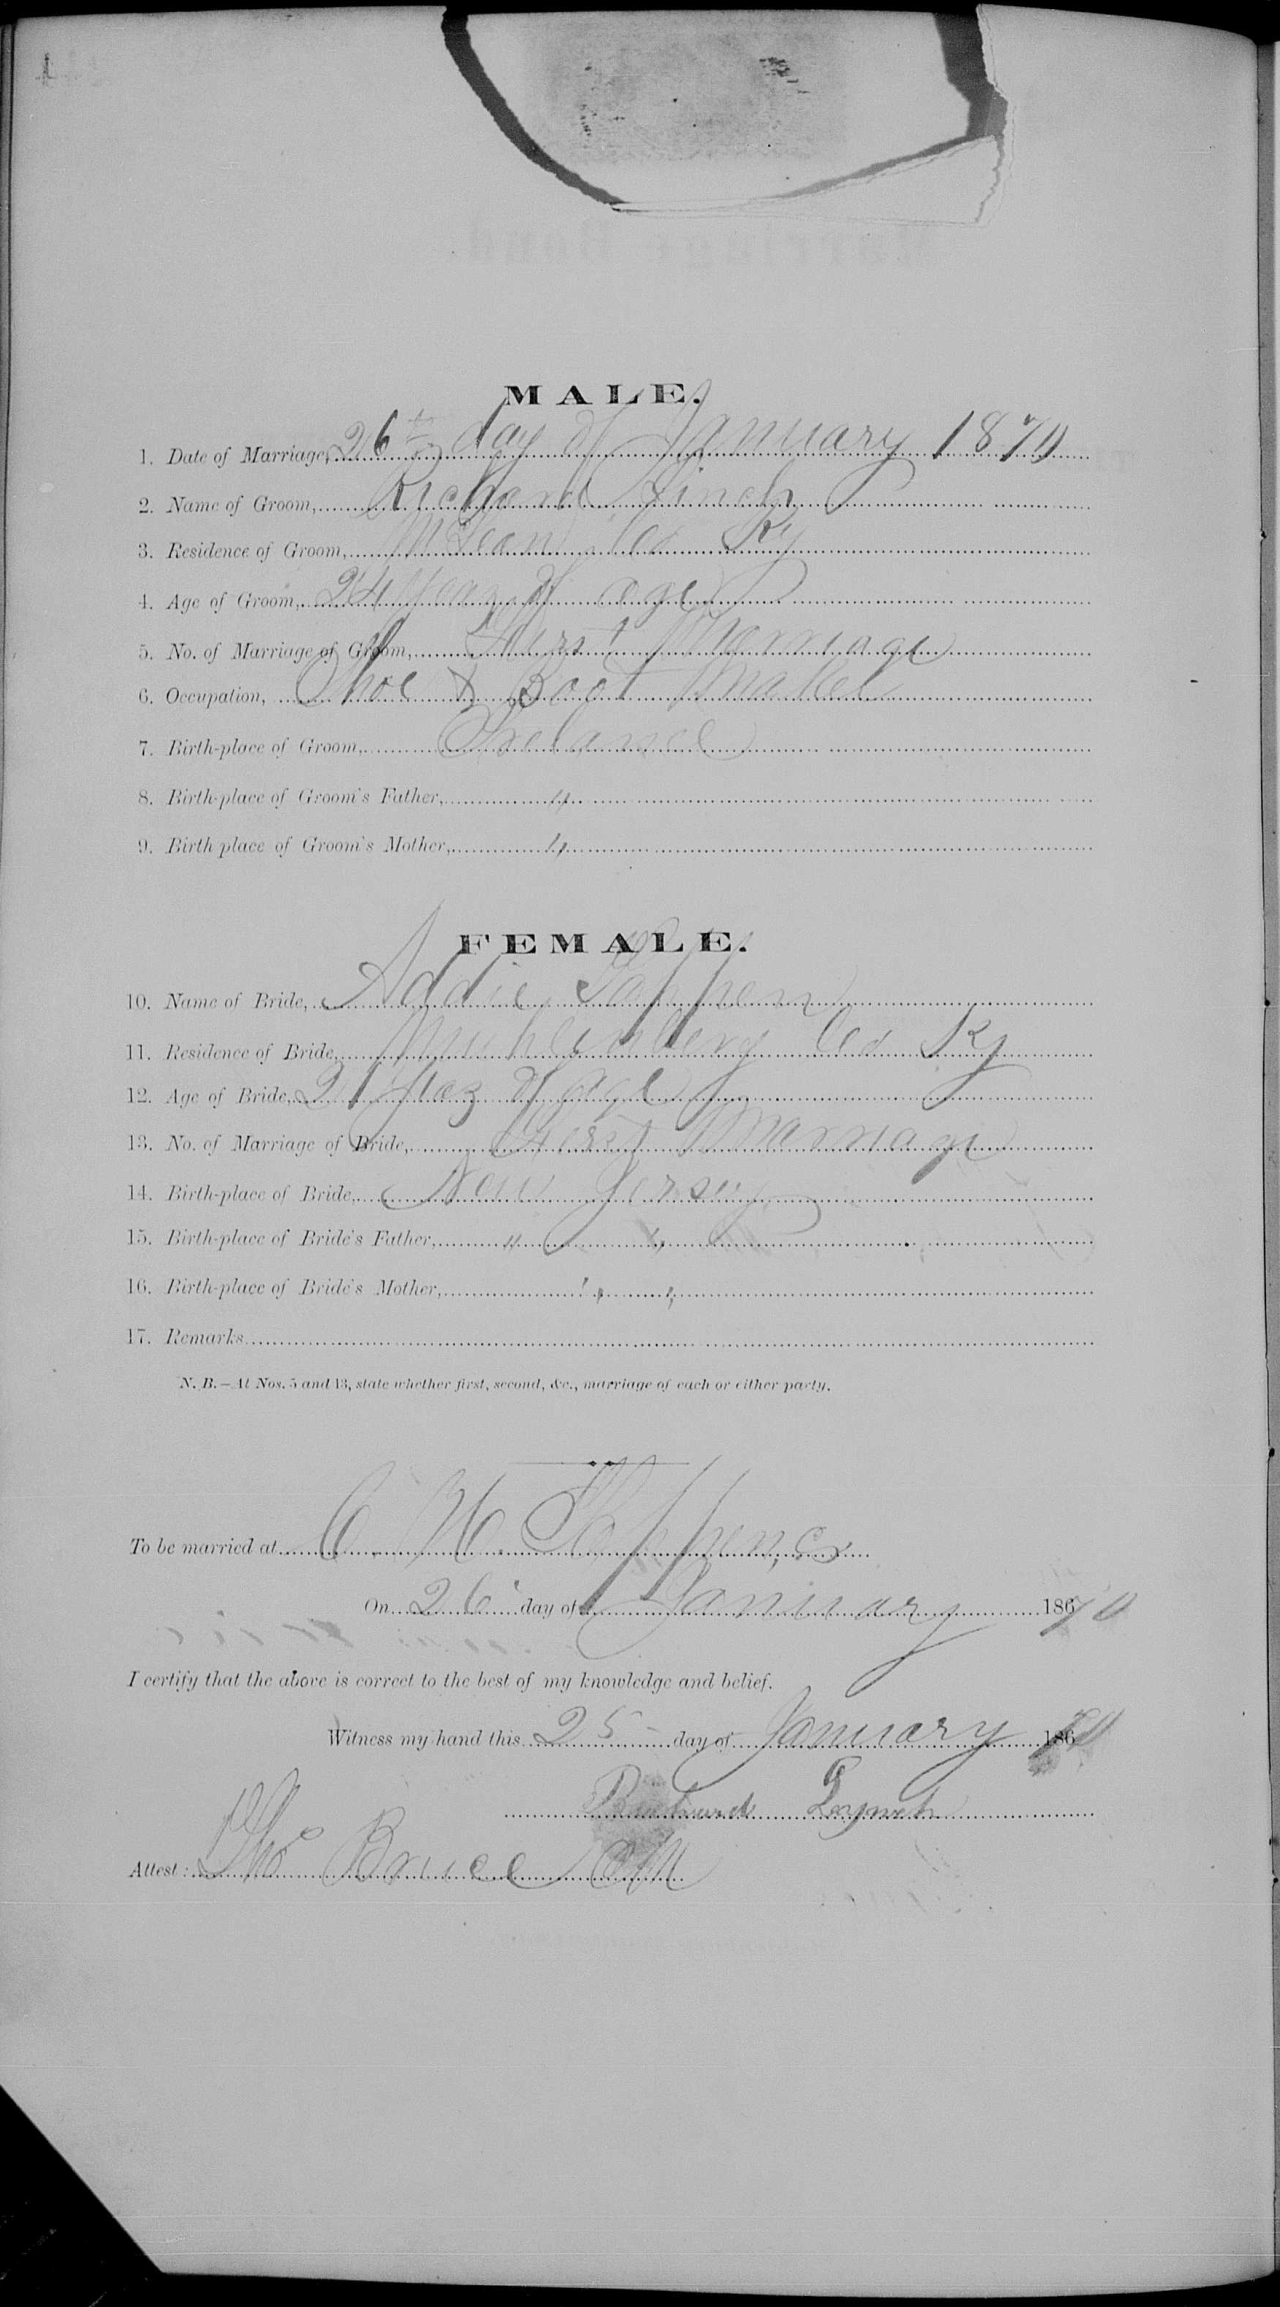 MALE.
1. Date of Marriage, 26th day of January 1870
2. Name of Groom, Richard Linch
3. Residence of Groom, McLean Co Ky
4. Age of Groom, 24 years of age
5. No. of Marriage of Groom, First Marriage
6. Occupation, Shoe & Boot Maker
7. Birth-place of Groom, Ireland
8. Birth-place of Groom's Father, "
9. Birth place of Groom's Mother, "
FEMALE.
10. Name of Bride, Addie Tappen
11. Residence of Bride, Muhlenberg Co Ky
12. Age of Bride, 21 years of age
13. No. of Marriage of Bride, First Marriage
14. Birth-place of Bride, New Jersey
15. Birth-place of Bride's Father, " "
16. Birth-place of Bride's Mother, " "
17. Remarks
N. B.—At Nos. 5 and 13, state whether first, second, &c., marriage of each or either party.
To be married at C. H. Tappen,s
On 26 day of January 18670
I certify that the above is correct to the best of my knowledge and belief.
Witness my hand this 25 day of January 18670
Richard Lynch
Attest: Tho Bruce